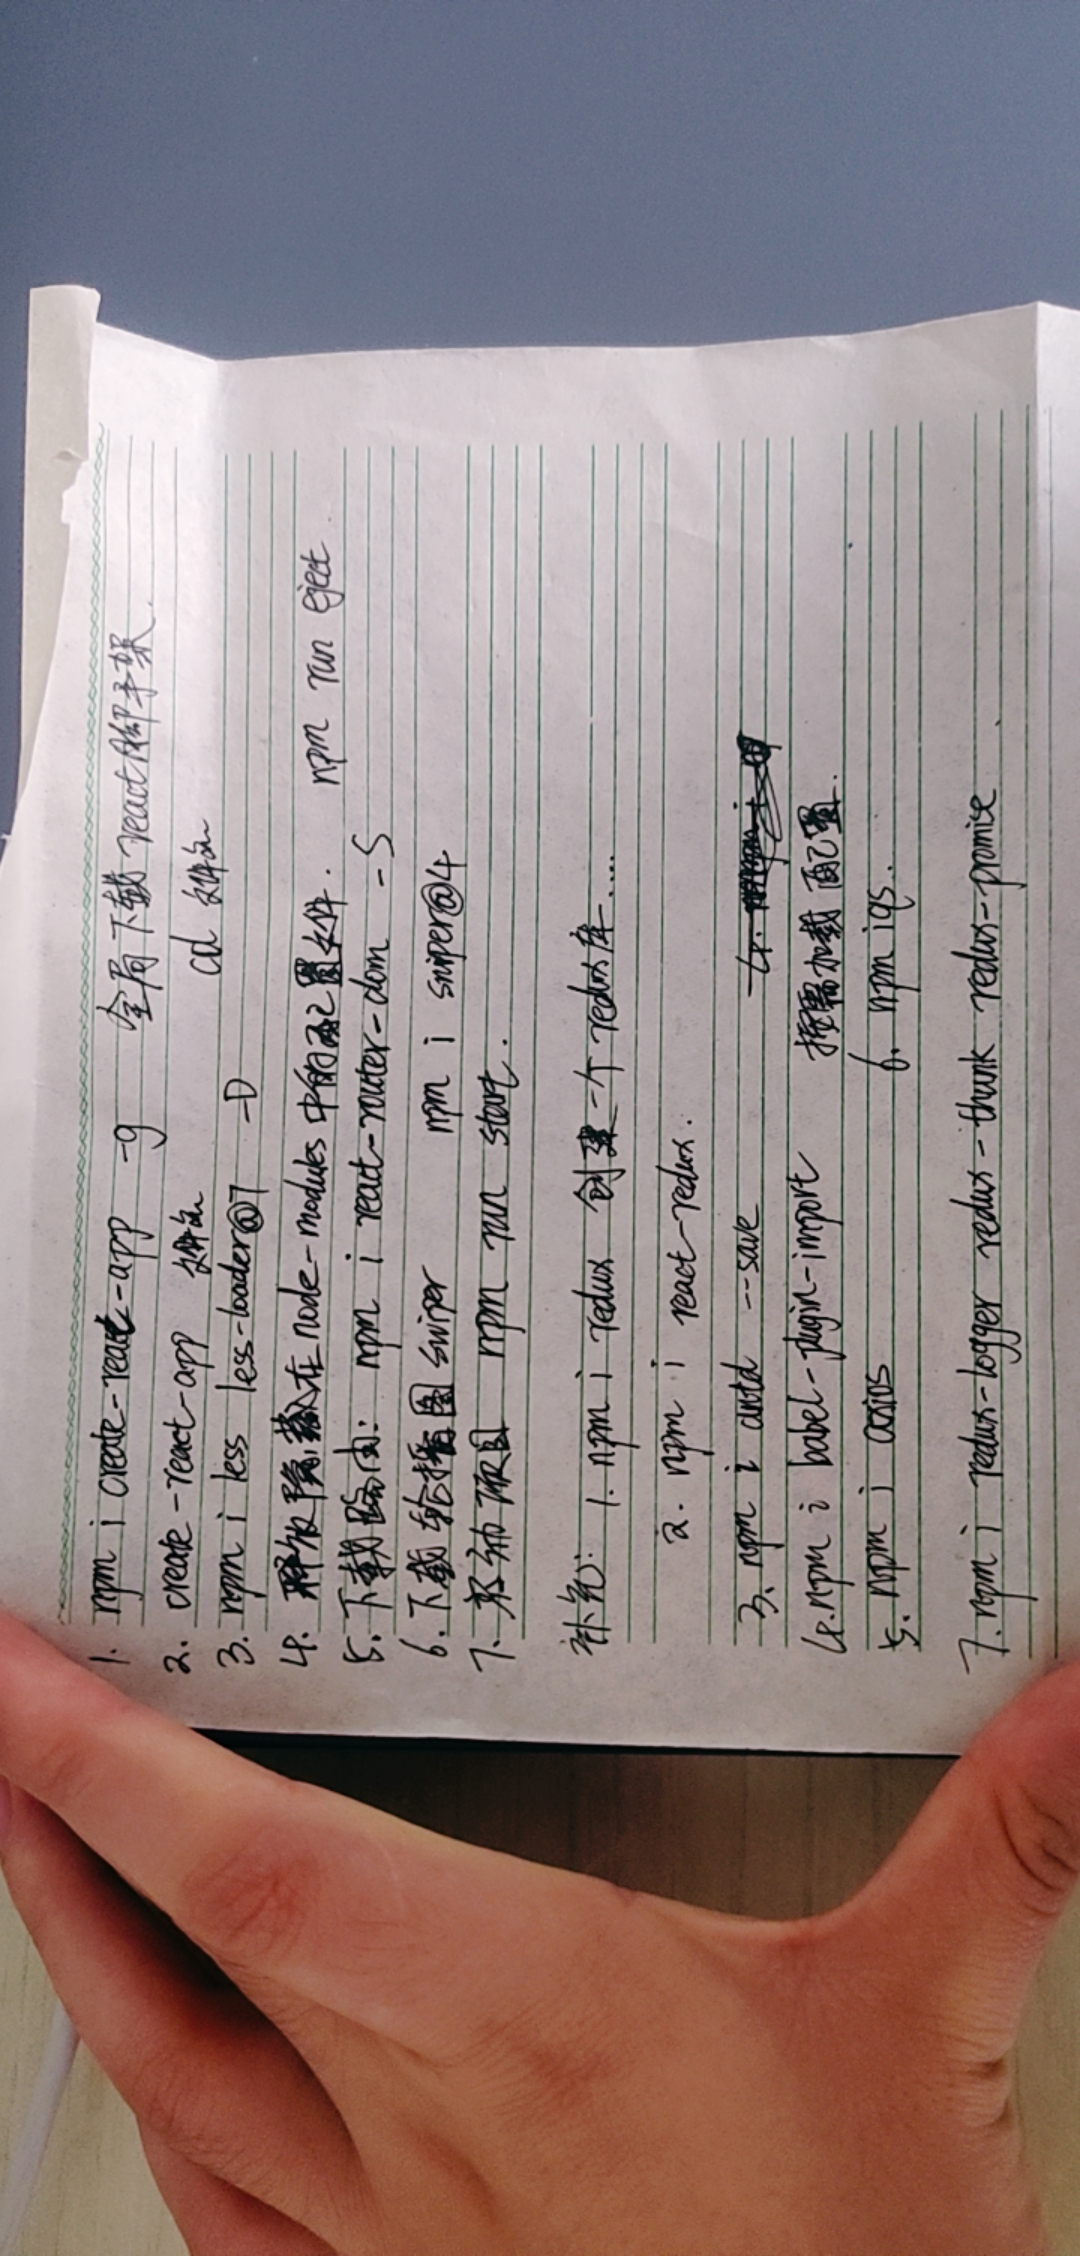 1. npm i create-react-app -g 全局下载react脚手架.
2. create-react-app 文件名 cd 文件名
3. npm i less less-loader@7 -D
4. 释放隐藏在node-modules中的配置文件. npm run eject
5. 下载路由: npm i react-router-dom -S
6. 下载轮播图 swiper npm i swiper@4
7. 驱动项目 npm run start.
补充: 1. npm i redux 创建一个redux库....
2. npm i react-redux.
3. npm i antd --save
4. npm i babel-plugin-import 按需加载配置.
5. npm i axios 6. npm i qs.
7. npm i redux-logger redux-thunk redux-promise